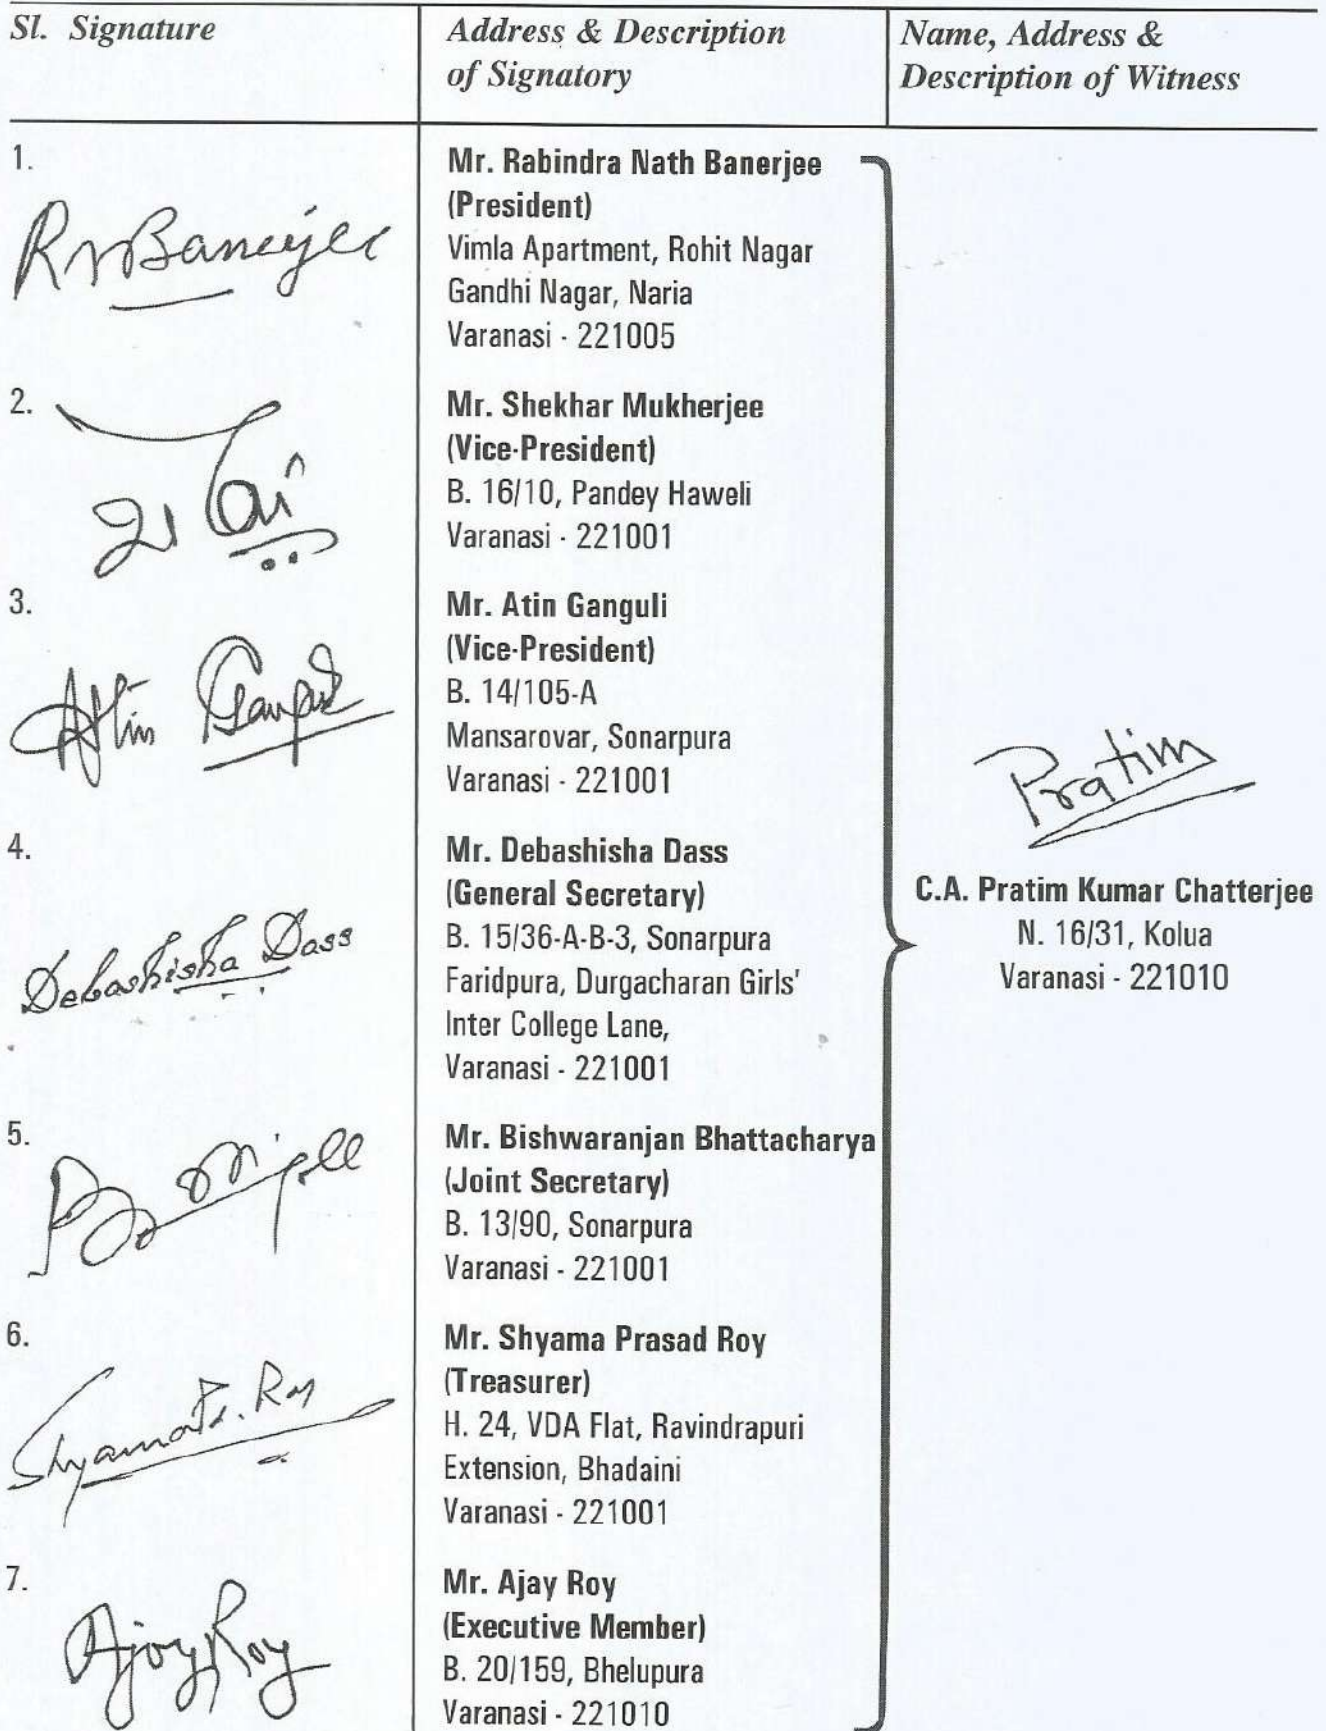 Sl. Signature
Address & Description
of Signatory
Name, Address &
Description of Witness
1.
RNBanerjee
Mr. Rabindra Nath Banerjee
(President)
Vimla Apartment, Rohit Nagar
Gandhi Nagar, Naria
Varanasi - 221005
2.
Mr. Shekhar Mukherjee
(Vice-President)
B. 16/10, Pandey Haweli
Varanasi - 221001
3.
Atin
Mr. Atin Ganguli
(Vice-President)
B. 14/105-A
Mansarovar, Sonarpura
Varanasi - 221001
4.
Debashisha Dass
Mr. Debashisha Dass
(General Secretary)
B. 15/36-A-B-3, Sonarpura
Faridpura, Durgacharan Girls'
Inter College Lane,
Varanasi - 221001
5.
Mr. Bishwaranjan Bhattacharya
(Joint Secretary)
B. 13/90, Sonarpura
Varanasi - 221001
6.
Shyama Pd. Roy
Mr. Shyama Prasad Roy
(Treasurer)
H. 24, VDA Flat, Ravindrapuri
Extension, Bhadaini
Varanasi - 221001
7.
Ajoy Roy
Mr. Ajay Roy
(Executive Member)
B. 20/159, Bhelupura
Varanasi - 221010
Pratim
C.A. Pratim Kumar Chatterjee
N. 16/31, Kolua
Varanasi - 221010